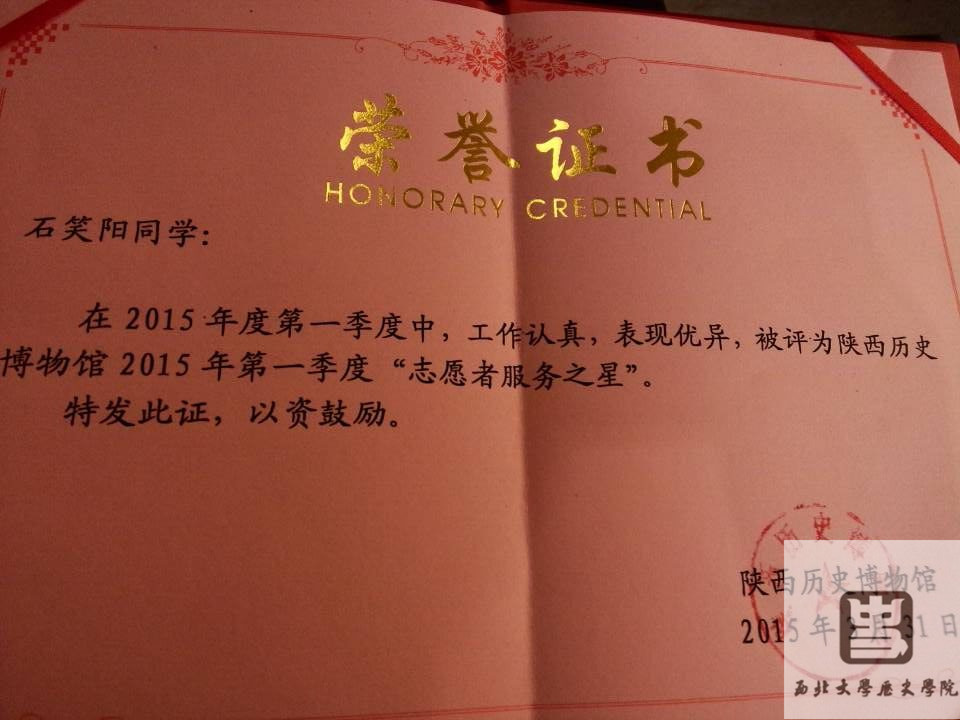 荣誉证书
HONORARY CREDENTIAL
石笑阳同学：
在 2015 年度第一季度中，工作认真，表现优异，被评为陕西历史
博物馆 2015 年第一季度“志愿者服务之星”。
特发此证，以资鼓励。
陕西历史博物馆
2015 年 3 月 31 日
西北大学历史学院